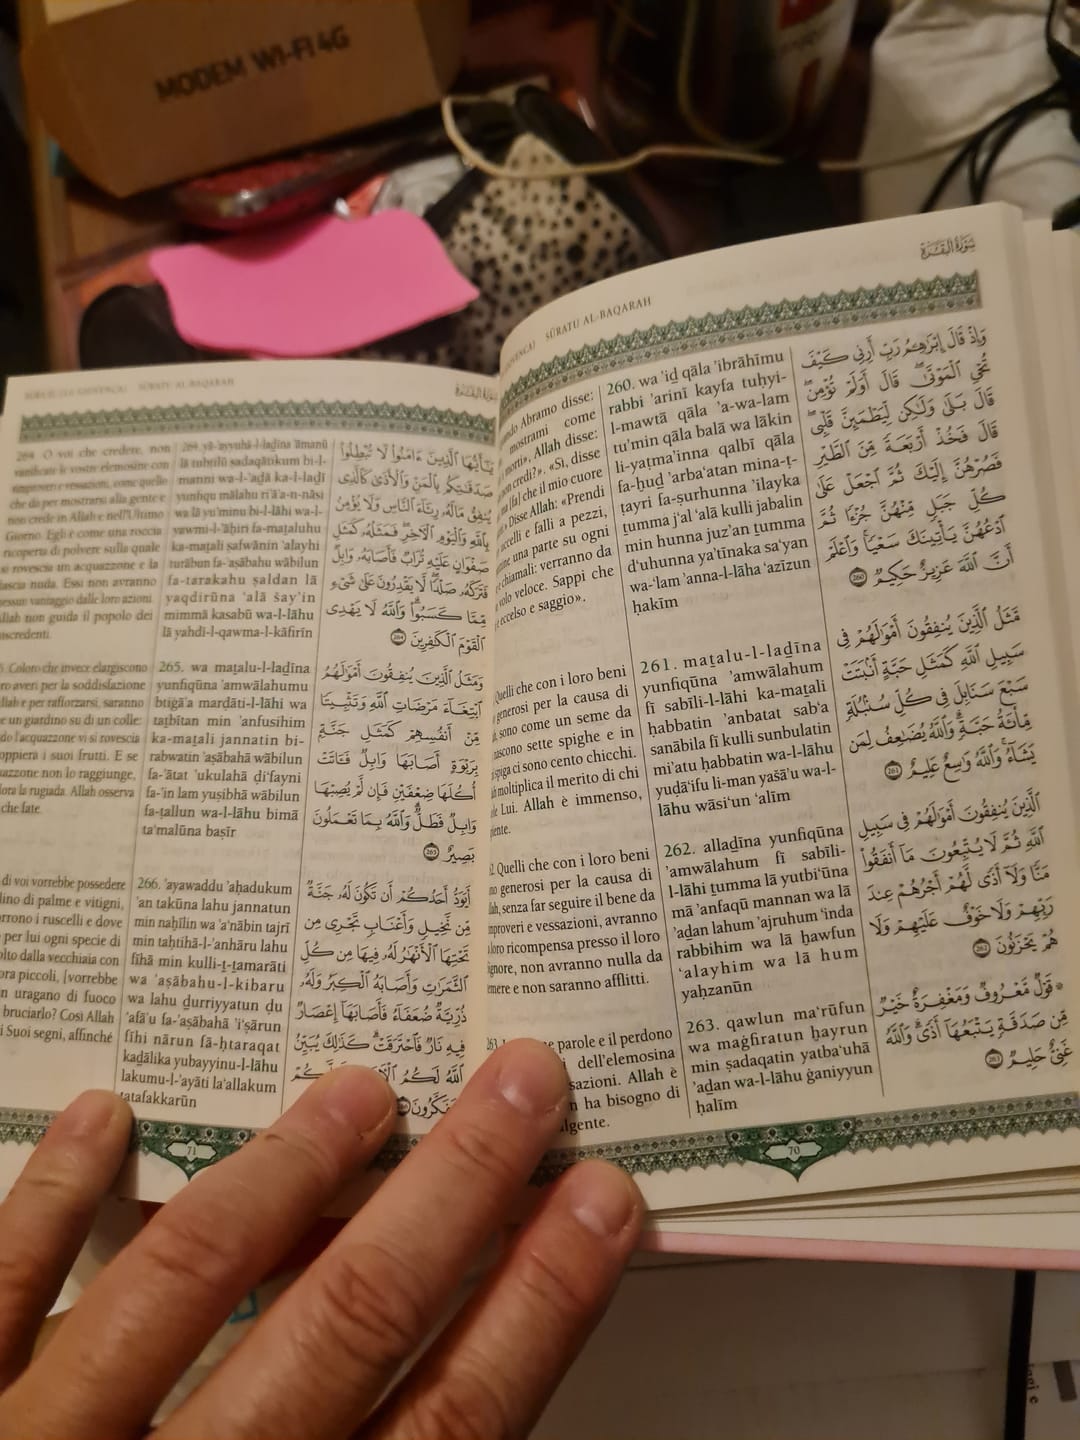 MODEM WI-FI 4G
سُورَةُ البَقَرَة
SŪRATU AL-BAQARAH
Abramo disse:
mostrami come
morti». Allah disse:
credi?». «Sì, disse
che il mio cuore
Disse Allah: «Prendi
uccelli e falli a pezzi,
una parte su ogni
chiamali: verranno da
volo veloce. Sappi che
eccelso e saggio».
260. wa 'iḏ qāla 'ibrāhīmu
rabbi 'arinī kayfa tuḥyi-
l-mawtā qāla 'a-wa-lam
tu'min qāla balā wa lākin
li-yaṭma'inna qalbī qāla
fa-ḫuḏ 'arba'atan mina-ṭ-
ṭayri fa-ṣurhunna 'ilayka
ṯumma j'al 'alā kulli jabalin
min hunna juz'an ṯumma
d'uhunna ya'tīnaka sa'yan
wa-'lam 'anna-l-lāha 'azīzun
ḥakīm
وَإِذْ قَالَ إِبْرَٰهِۦمُ رَبِّ أَرِنِى كَيْفَ
تُحْىِ ٱلْمَوْتَىٰ ۖ قَالَ أَوَلَمْ تُؤْمِن ۖ
قَالَ بَلَىٰ وَلَـٰكِن لِّيَطْمَئِنَّ قَلْبِى ۖ
قَالَ فَخُذْ أَرْبَعَةً مِّنَ ٱلطَّيْرِ
فَصُرْهُنَّ إِلَيْكَ ثُمَّ ٱجْعَلْ عَلَىٰ
كُلِّ جَبَلٍ مِّنْهُنَّ جُزْءًا ثُمَّ
ٱدْعُهُنَّ يَأْتِينَكَ سَعْيًا ۚ وَٱعْلَمْ
أَنَّ ٱللَّهَ عَزِيزٌ حَكِيمٌ 260
Quelli che con i loro beni
generosi per la causa di
sono come un seme da
nascono sette spighe e in
spiga ci sono cento chicchi.
moltiplica il merito di chi
Lui. Allah è immenso,
261. maṯalu-l-laḏīna
yunfiqūna 'amwālahum
fī sabīli-l-lāhi ka-maṯali
ḥabbatin 'anbatat sab'a
sanābila fī kulli sunbulatin
mi'atu ḥabbatin wa-l-lāhu
yuḍā'ifu li-man yašā'u wa-l-
lāhu wāsi'un 'alīm
مَّثَلُ ٱلَّذِينَ يُنفِقُونَ أَمْوَٰلَهُمْ فِى
سَبِيلِ ٱللَّهِ كَمَثَلِ حَبَّةٍ أَنۢبَتَتْ
سَبْعَ سَنَابِلَ فِى كُلِّ سُنۢبُلَةٍ
مِّا۟ئَةُ حَبَّةٍ ۗ وَٱللَّهُ يُضَـٰعِفُ لِمَن
يَشَآءُ ۗ وَٱللَّهُ وَٰسِعٌ عَلِيمٌ 261
Quelli che con i loro beni
generosi per la causa di
senza far seguire il bene da
improveri e vessazioni, avranno
loro ricompensa presso il loro
non avranno nulla da
temere e non saranno afflitti.
262. allaḏīna yunfiqūna
'amwālahum fī sabīli-
l-lāhi ṯumma lā yutbi'ūna
mā 'anfaqū mannan wa lā
'aḏan lahum 'ajruhum 'inda
rabbihim wa lā ḫawfun
'alayhim wa lā hum
yaḥzanūn
ٱلَّذِينَ يُنفِقُونَ أَمْوَٰلَهُمْ فِى سَبِيلِ
ٱللَّهِ ثُمَّ لَا يُتْبِعُونَ مَآ أَنفَقُوا۟
مَنًّا وَلَآ أَذًى ۙ لَّهُمْ أَجْرُهُمْ عِندَ
رَبِّهِمْ وَلَا خَوْفٌ عَلَيْهِمْ وَلَا
هُمْ يَحْزَنُونَ 262
parole e il perdono
dell'elemosina
Allah è
ha bisogno di
263. qawlun ma'rūfun
wa maġfiratun ḫayrun
min ṣadaqatin yatba'uhā
'aḏan wa-l-lāhu ġaniyyun
ḥalīm
قَوْلٌ مَّعْرُوفٌ وَمَغْفِرَةٌ خَيْرٌ
مِّن صَدَقَةٍ يَتْبَعُهَآ أَذًى ۗ وَٱللَّهُ
غَنِىٌّ حَلِيمٌ 263
70
SŪRATU AL-BAQARAH
264. O voi che credete, non
vanificate le vostre elemosine con
rimproveri e vessazioni, come quello
che dà per mostrarsi alla gente e
non crede in Allah e nell'Ultimo
Giorno. Egli è come una roccia
ricoperta di polvere sulla quale
si rovescia un acquazzone e la
lascia nuda. Essi non avranno
nessun vantaggio dalle loro azioni.
Allah non guida il popolo dei
miscredenti.
264. yā-'ayyuhā-l-laḏīna āmanū
lā tubṭilū ṣadaqātikum bi-l-
manni wa-l-'aḏā ka-l-laḏī
yunfiqu mālahu ri'ā'a-n-nāsi
wa lā yu'minu bi-l-lāhi wa-l-
yawmi-l-'āḫiri fa-maṯaluhu
ka-maṯali ṣafwānin 'alayhi
turābun fa-'aṣābahu wābilun
fa-tarakahu ṣaldan lā
yaqdirūna 'alā šay'in
mimmā kasabū wa-l-lāhu
lā yahdi-l-qawma-l-kāfirīn
يَـٰٓأَيُّهَا ٱلَّذِينَ ءَامَنُوا۟ لَا تُبْطِلُوا۟
صَدَقَـٰتِكُم بِٱلْمَنِّ وَٱلْأَذَىٰ كَٱلَّذِى
يُنفِقُ مَالَهُۥ رِئَآءَ ٱلنَّاسِ وَلَا يُؤْمِنُ
بِٱللَّهِ وَٱلْيَوْمِ ٱلْـَٔاخِرِ ۖ فَمَثَلُهُۥ كَمَثَلِ
صَفْوَانٍ عَلَيْهِ تُرَابٌ فَأَصَابَهُۥ وَابِلٌ
فَتَرَكَهُۥ صَلْدًا ۖ لَّا يَقْدِرُونَ عَلَىٰ شَىْءٍ
مِّمَّا كَسَبُوا۟ ۗ وَٱللَّهُ لَا يَهْدِى
ٱلْقَوْمَ ٱلْكَـٰفِرِينَ 264
Coloro che invece elargiscono
averi per la soddisfazione
e per rafforzarsi, saranno
un giardino su di un colle:
l'acquazzone vi si rovescia
i suoi frutti. E se
non lo raggiunge,
la rugiada. Allah osserva
che fate.
265. wa maṯalu-l-laḏīna
yunfiqūna 'amwālahumu
btiġā'a marḍāti-l-lāhi wa
taṯbītan min 'anfusihim
ka-maṯali jannatin bi-
rabwatin 'aṣābahā wābilun
fa-'ātat 'ukulahā ḍi'fayni
fa-'in lam yuṣibhā wābilun
fa-ṭallun wa-l-lāhu bimā
ta'malūna baṣīr
وَمَثَلُ ٱلَّذِينَ يُنفِقُونَ أَمْوَٰلَهُمُ
ٱبْتِغَآءَ مَرْضَاتِ ٱللَّهِ وَتَثْبِيتًا
مِّنْ أَنفُسِهِمْ كَمَثَلِ جَنَّةٍۭ
بِرَبْوَةٍ أَصَابَهَا وَابِلٌ فَـَٔاتَتْ
أُكُلَهَا ضِعْفَيْنِ فَإِن لَّمْ يُصِبْهَا
وَابِلٌ فَطَلٌّ ۗ وَٱللَّهُ بِمَا تَعْمَلُونَ
بَصِيرٌ 265
di voi vorrebbe possedere
di palme e vitigni,
i ruscelli e dove
per lui ogni specie di
dalla vecchiaia con
piccoli, [vorrebbe
uragano di fuoco
bruciarlo? Così Allah
i Suoi segni, affinché
266. 'ayawaddu 'aḥadukum
'an takūna lahu jannatun
min naḫīlin wa 'a'nābin tajrī
min taḥtihā-l-'anhāru lahu
fīhā min kulli-ṯ-ṯamarāti
wa 'aṣābahu-l-kibaru
wa lahu ḏurriyyatun ḍu
'afā'u fa-'aṣābahā 'i'ṣārun
fīhi nārun fā-ḥtaraqat
kaḏālika yubayyinu-l-lāhu
lakumu-l-'ayāti la'allakum
tatafakkarūn
أَيَوَدُّ أَحَدُكُمْ أَن تَكُونَ لَهُۥ جَنَّةٌ
مِّن نَّخِيلٍ وَأَعْنَابٍ تَجْرِى مِن
تَحْتِهَا ٱلْأَنْهَـٰرُ لَهُۥ فِيهَا مِن كُلِّ
ٱلثَّمَرَٰتِ وَأَصَابَهُ ٱلْكِبَرُ وَلَهُۥ
ذُرِّيَّةٌ ضُعَفَآءُ فَأَصَابَهَآ إِعْصَارٌ
فِيهِ نَارٌ فَٱحْتَرَقَتْ ۗ كَذَٰلِكَ يُبَيِّنُ
ٱللَّهُ لَكُمُ
71